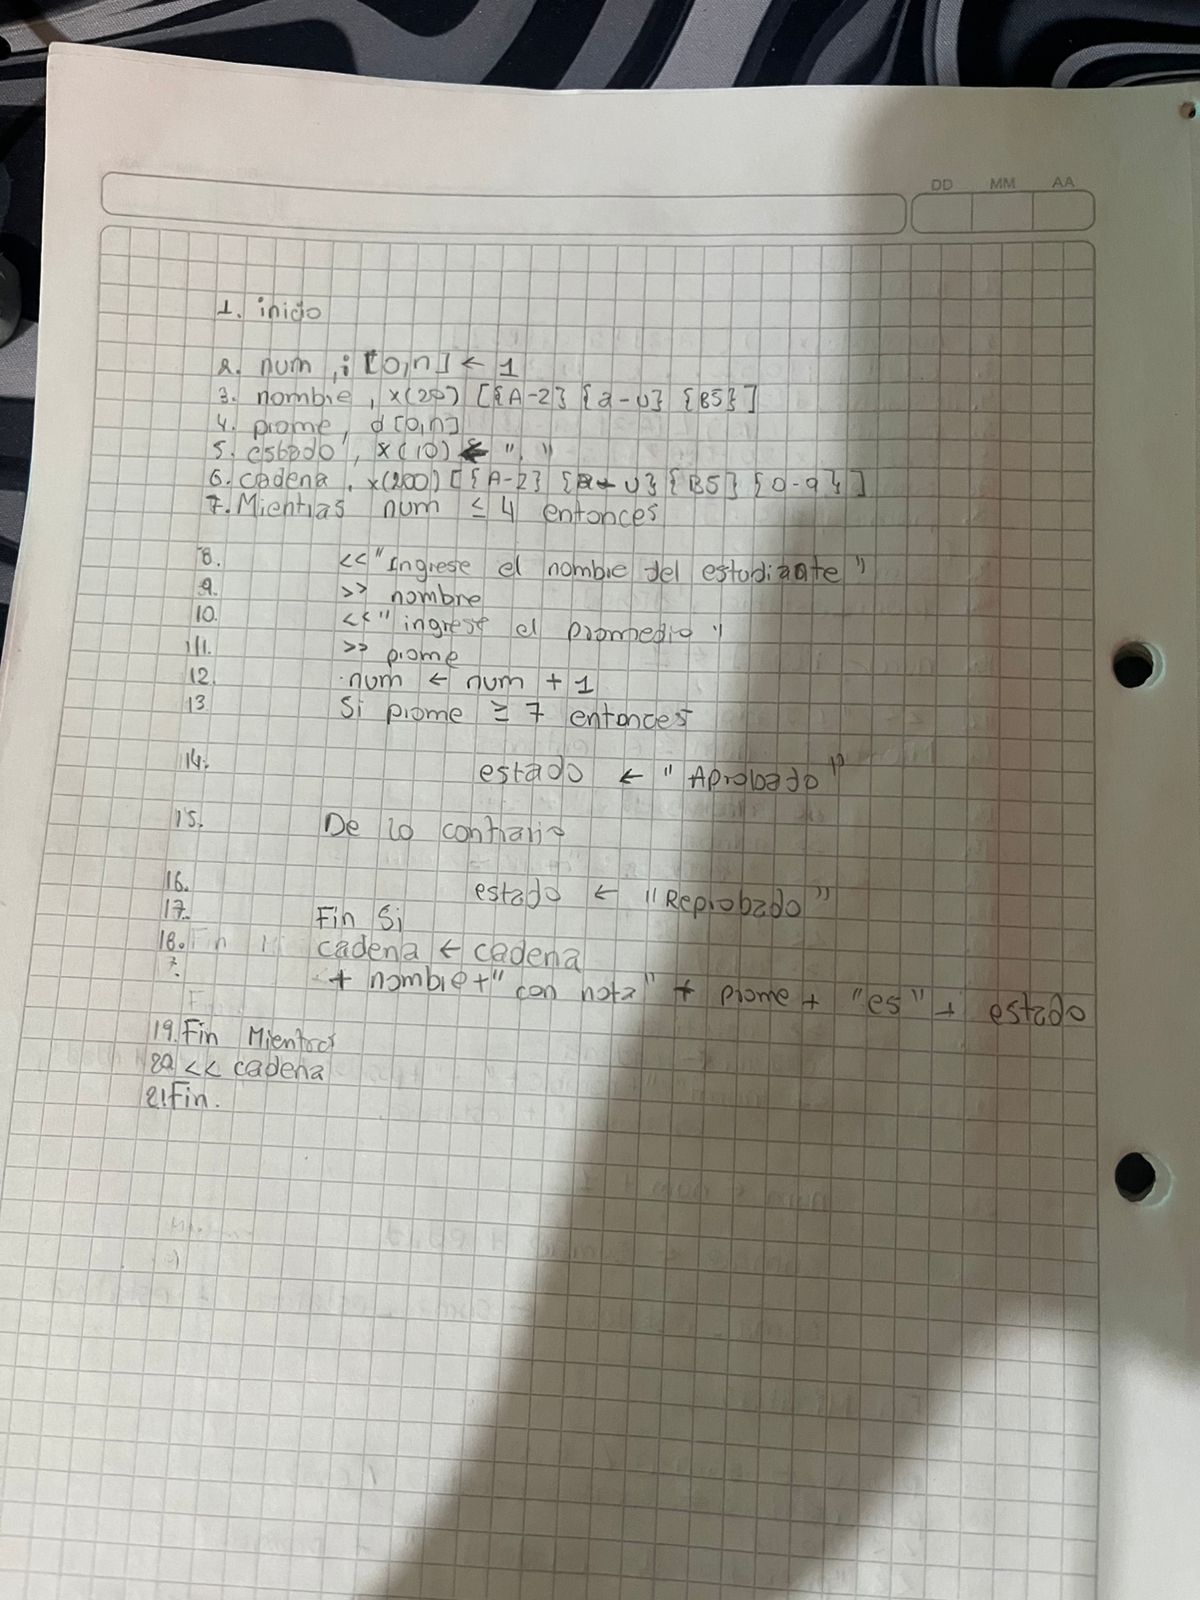 DD MM AA
1. inicio
2. num , i [0,n] ← 1
3. nombre , x(20) [{A-Z} {a-u} {BS}]
4. prome, d [0,n]
5. estado , x(10) ← " "
6. cadena , x(200) [{A-Z} {a-u} {BS} {0-9}]
7. Mientras num ≤ 4 entonces
8. << "Ingrese el nombre del estudiante"
9. >> nombre
10. << "ingrese el promedio"
11. >> prome
12. num ← num + 1
13 Si prome ≥ 7 entonces
14. estado ← "Aprobado"
15. De lo contrario
16. estado ← "Reprobado"
17. Fin Si
18. cadena ← cadena
+ nombre +" con nota" + prome + "es" + estado
19. Fin Mientras
20 << cadena
21 Fin.